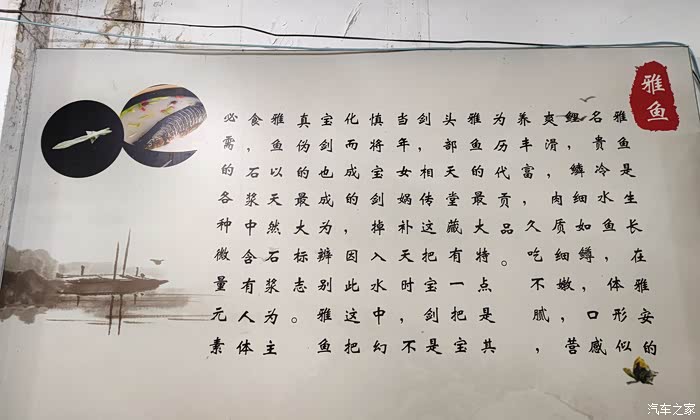 雅鱼
雅鱼是生长在雅安的
名贵冷水鱼，体形似
鲤，鳞细如鳟，口感
爽滑，肉质细嫩，营
养丰富，久吃不腻，
为历代贡品。
雅鱼的最大特点是其
头部天堂藏有一把宝
剑，相传这把宝剑是
当年女娲补天时，不
慎将宝剑掉入水中幻
化而成的，因此这把
宝剑也成为辨别雅鱼
真伪的最大标志。
雅鱼以天然石浆为主
食，石浆中含有人体
必需的各种微量元素
汽车之家